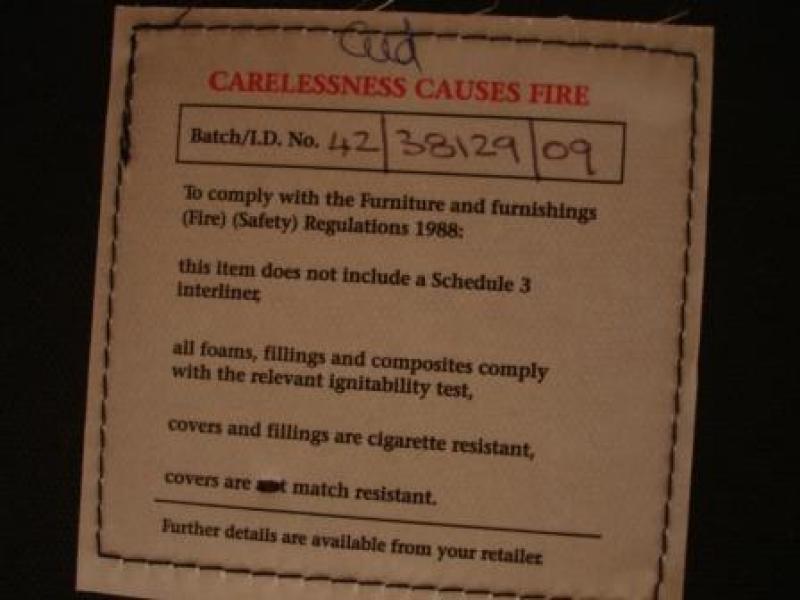 CARELESSNESS CAUSES FIRE
Batch/I.D. No. 42 38129 09
To comply with the Furniture and furnishings
(Fire) (Safety) Regulations 1988:
this item does not include a Schedule 3
interliner,
all foams, fillings and composites comply
with the relevant ignitability test,
covers and fillings are cigarette resistant,
covers are match resistant.
Further details are available from your retailer.